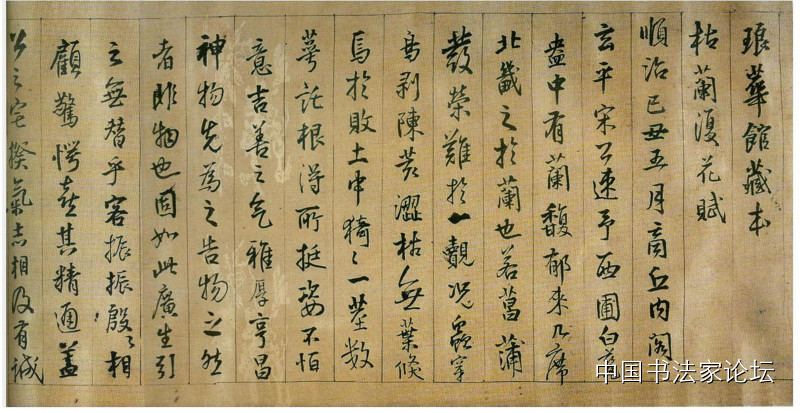 琅華館藏本
枯蘭復花賦
順治己丑五月商丘内閣
玄平宋公速予西圃白瓷
盎中有蘭馥郁來几席
北畿之於蘭也若菖蒲
發榮難於一覯況蟲穿
鳥剥陳荄澀枯無葉倏
焉於敗土中猗〻一莖数
萼託根得所挺姿不怕
意吉善之气雅厚亨昌
神物先為之告物之然
者雎物也固如此廣生引
之無替乎客振振殷〻相
顧驚愕嘉其精通蓋
公之宅揆氣志相及有誠
中国书法家论坛